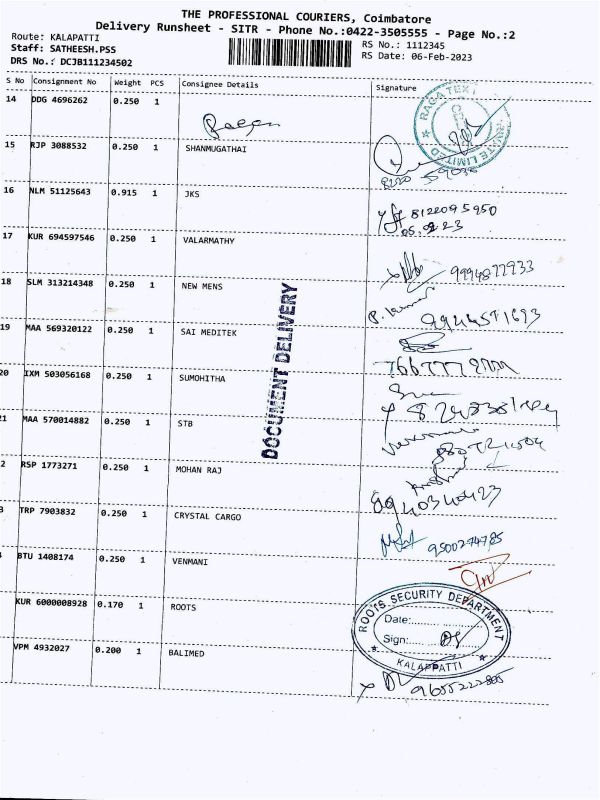 THE PROFESSIONAL COURIERS, Coimbatore
Delivery Runsheet - SITR - Phone No.:0422-3505555 - Page No.:2
Route: KALAPATTI
Staff: SATHEESH.PSS
DRS No.: DCJB111234502
RS No.: 1112345
RS Date: 06-Feb-2023
S No Consignment No Weight PCS Consignee Details Signature
14 DDG 4696262 0.250 1
RAGA TEX
PRIVATE LIMITED
15 RJP 3088532 0.250 1 SHANMUGATHAI
16 NLM 51125643 0.915 1 JKS
8122095950
17 KUR 694597546 0.250 1 VALARMATHY
9994877933
18 SLM 313214348 0.250 1 NEW MENS
9944571693
19 MAA 569320122 0.250 1 SAI MEDITEK
20 IXM 503056168 0.250 1 SUMOHITHA
21 MAA 570014882 0.250 1 STB
2 RSP 1773271 0.250 1 MOHAN RAJ
9940340423
3 TRP 7903832 0.250 1 CRYSTAL CARGO
9500274785
BTU 1408174 0.250 1 VENMANI
KUR 6000008928 0.170 1 ROOTS
ROOTS SECURITY DEPARTMENT
Date:
Sign:
KALAPPATTI
VPM 4932027 0.200 1 BALIMED
9655222805
DOCUMENT DELIVERY